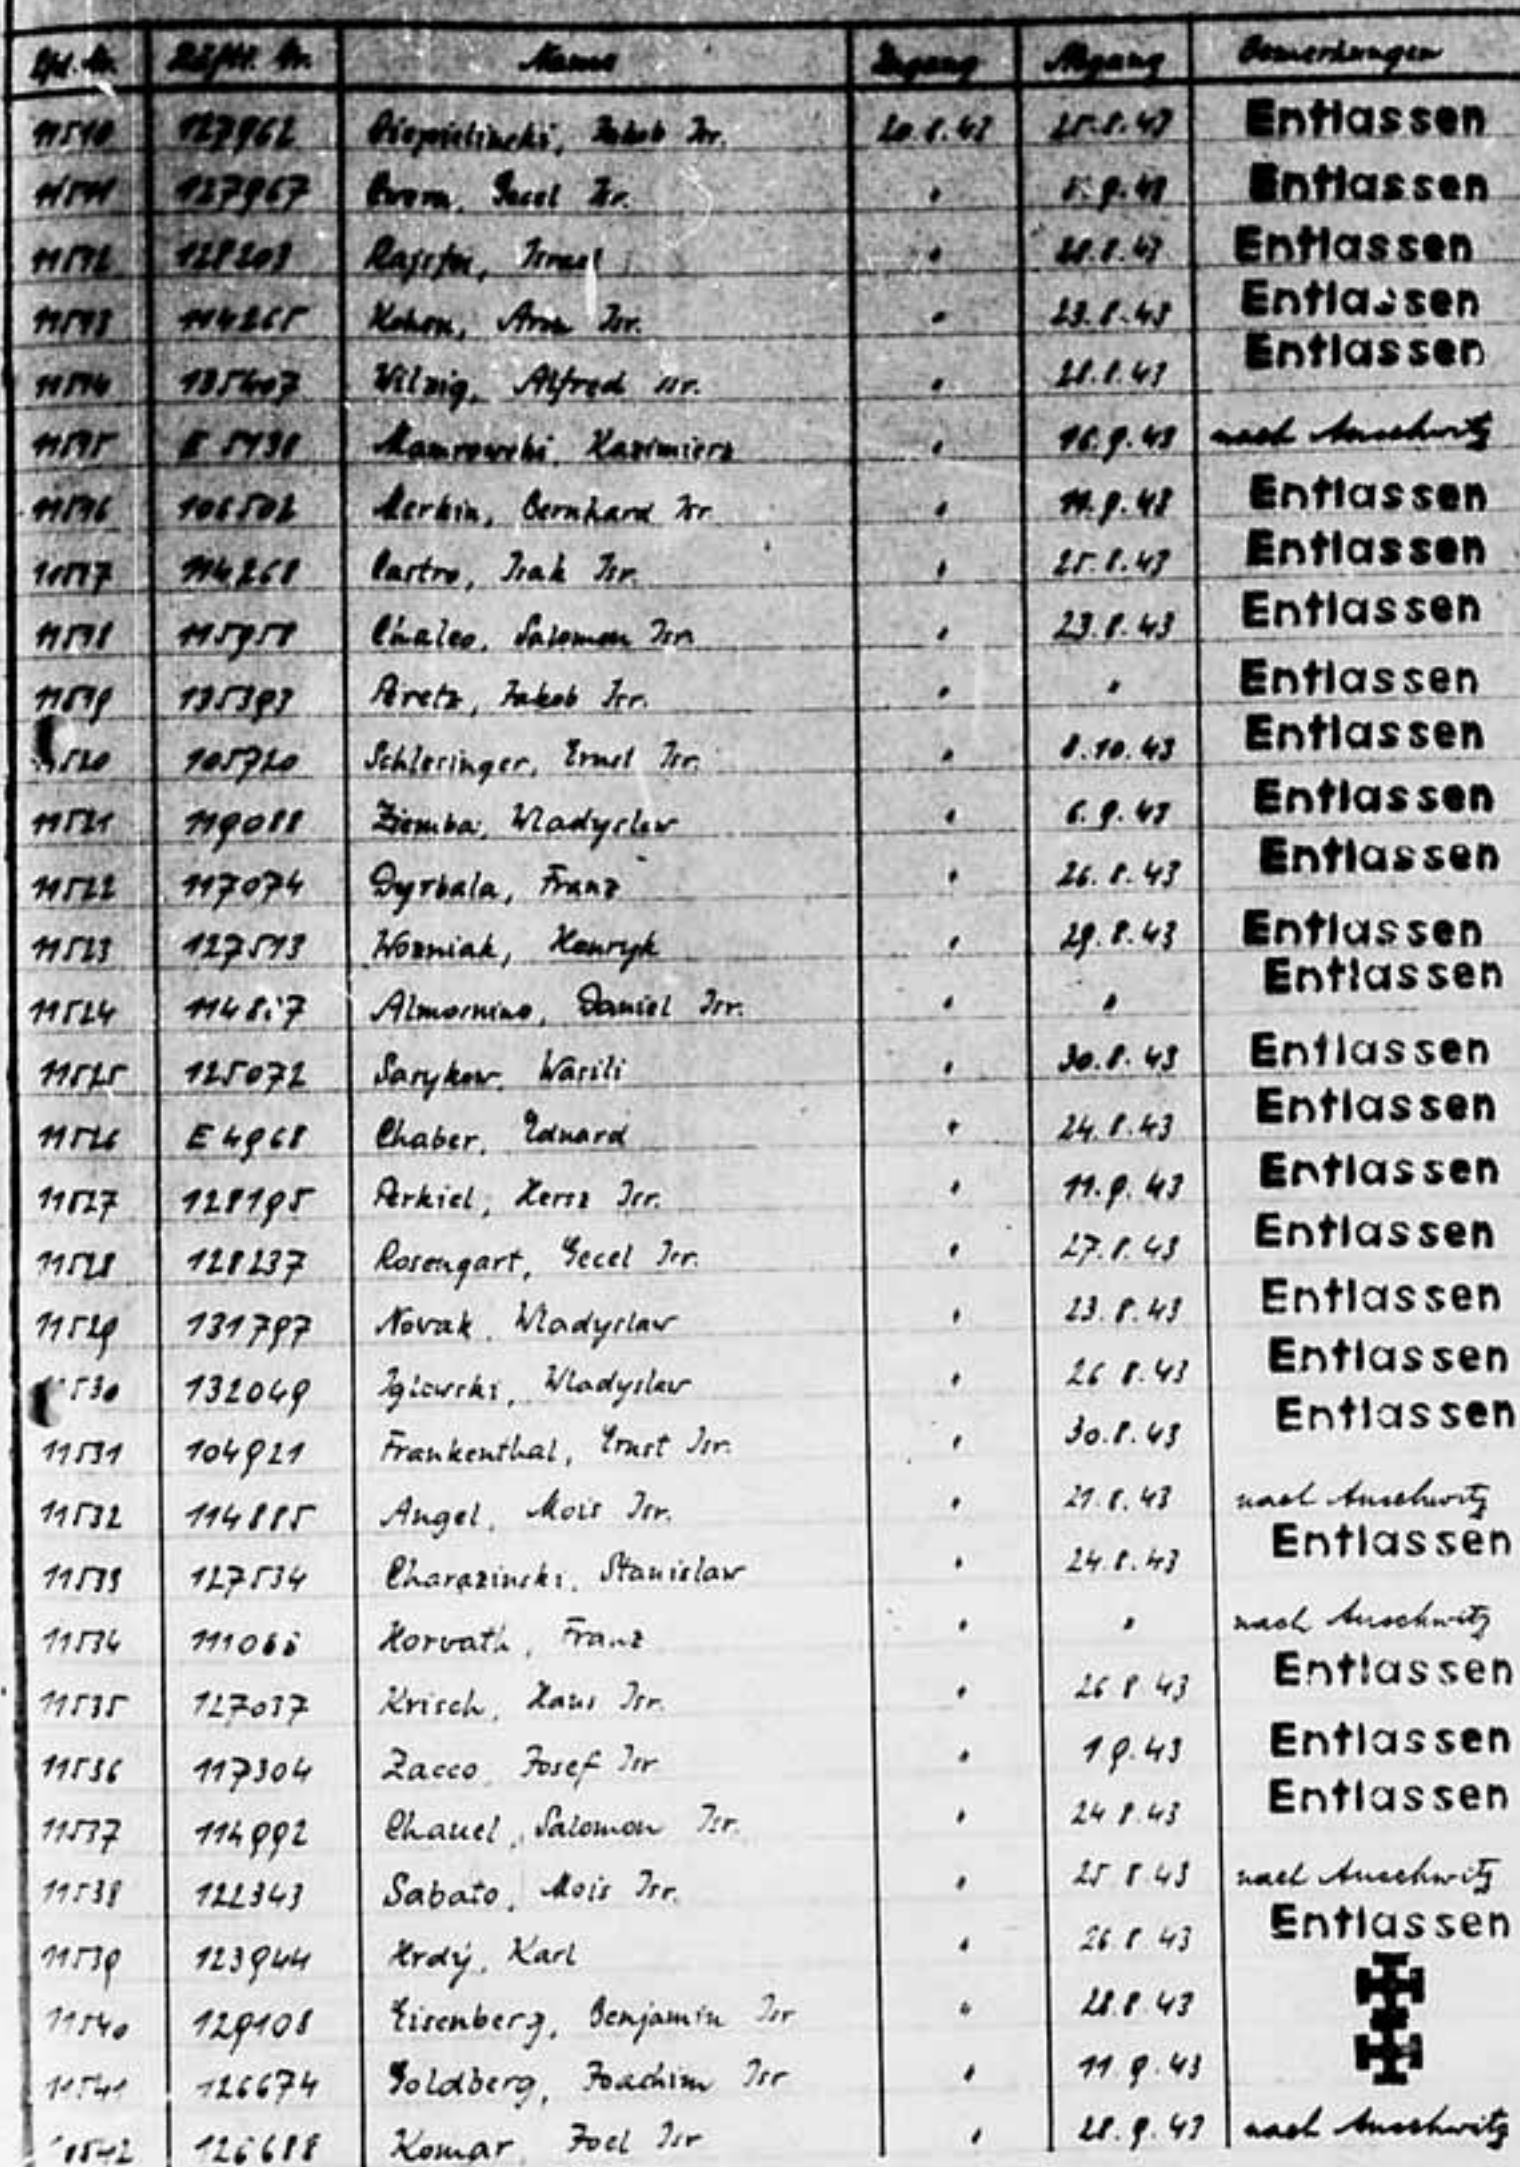 Lfd. Nr. Häftl. Nr. Name Zugang Abgang Bemerkungen
11510 127962 Jakob Isr. 20.8.43 25.8.43 Entlassen
11511 127967 Gecel Isr. " 5.9.43 Entlassen
11512 128203 Israel " 28.8.43 Entlassen
11513 114265 Kohen, Aron Isr. " 23.8.43 Entlassen
11514 135407 Wilzig, Alfred Isr. " 28.8.43 Entlassen
11515 E 5138 Kazimierz " 16.9.43 nach Auschwitz
11516 106502 Merkin, Bernhard Isr. " 11.9.43 Entlassen
11517 114268 Castro, Isak Isr. " 25.8.43 Entlassen
11518 115958 Salomon Isr. " 23.8.43 Entlassen
11519 135393 Peretz, Jakob Isr. " " Entlassen
11520 105720 Schlesinger, Ernst Isr. " 8.10.43 Entlassen
11521 119088 Ziemba, Wladyslaw " 6.9.43 Entlassen
11522 117074 Dyrbala, Franz " 26.8.43 Entlassen
11523 127513 Wozniak, Henryk " 29.8.43 Entlassen
11524 Almosnino, Daniel Isr. " " Entlassen
11525 125072 Sarykow, Wasili " 30.8.43 Entlassen
11526 E 4968 Chaber, Eduard " 24.8.43 Entlassen
11527 128195 Perkiel, Hersz Isr. " 11.9.43 Entlassen
11528 128237 Rosengart, Gecel Isr. " 27.8.43 Entlassen
11529 131797 Novak, Wladyslaw " 23.8.43 Entlassen
11530 132049 Iglewski, Wladyslaw " 26.8.43 Entlassen
11531 104921 Frankenthal, Ernst Isr. " 30.8.43 Entlassen
11532 114885 Angel, Mois Isr. " 21.8.43 nach Auschwitz
11533 127534 Charazinski, Stanislaw " 24.8.43 Entlassen
11534 Horvath, Franz " " nach Auschwitz
11535 127037 Krisch, Hans Isr. " 26.8.43 Entlassen
11536 117304 Zacco, Josef Isr " 1.9.43 Entlassen
11537 114992 Chauel, Salomon Isr. " 24.8.43 Entlassen
11538 122343 Sabato, Mois Isr. " 25.8.43 nach Auschwitz
11539 123944 Hrdý, Karl " 26.8.43 Entlassen
11540 129108 Eisenberg, Benjamin Isr " 28.8.43
11541 126674 Goldberg, Joachim Isr " 11.9.43
11542 126688 Komar, Joel Isr " 28.9.43 nach Auschwitz